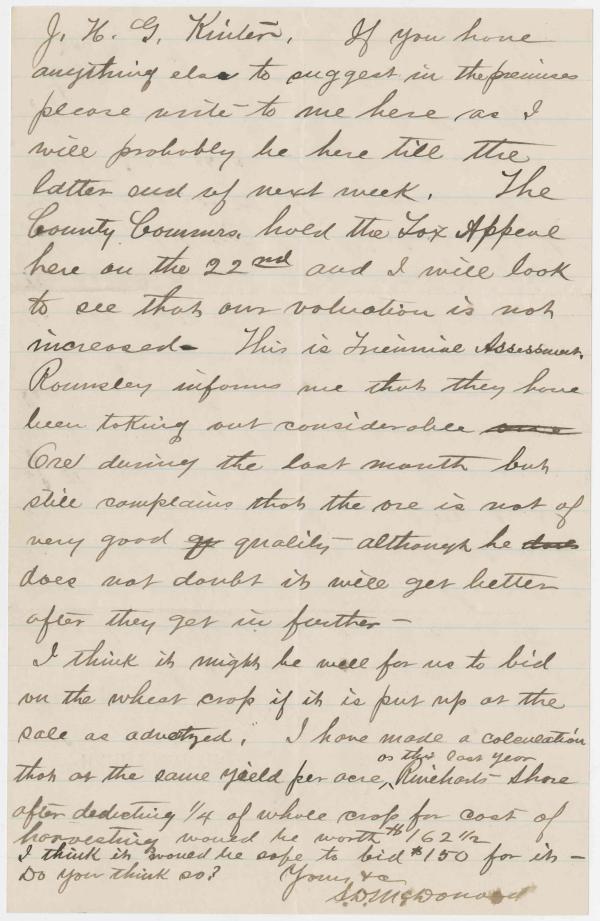 J. H. G. Kinter. If you have
anything else to suggest in the premises
please write to me here as I
will probably be here till the
latter end of next week. The
County Commrs. hold the Tax Appeal
here on the 22nd and I will look
to see that our valuation is not
increased- This is Triennial Assessment.
Rounsley informs me that they have
been taking out considerable one
Ore during the last month but
still complains that the ore is not of
very good qu quality - although he does
does not doubt it will get better
after they get in further -
I think it might be well for us to bid
on the wheat crop if it is put up at the
sale as advertized. I have made a calculation
as this last year
that at the same yield per acre, Rineharts Share
after deducting 1/4 of whole crop for cost of
harvesting would be worth $162 1/2
I think it would be safe to bid $150 for it -
Do you think so? Yours &c
S.D. McDonald